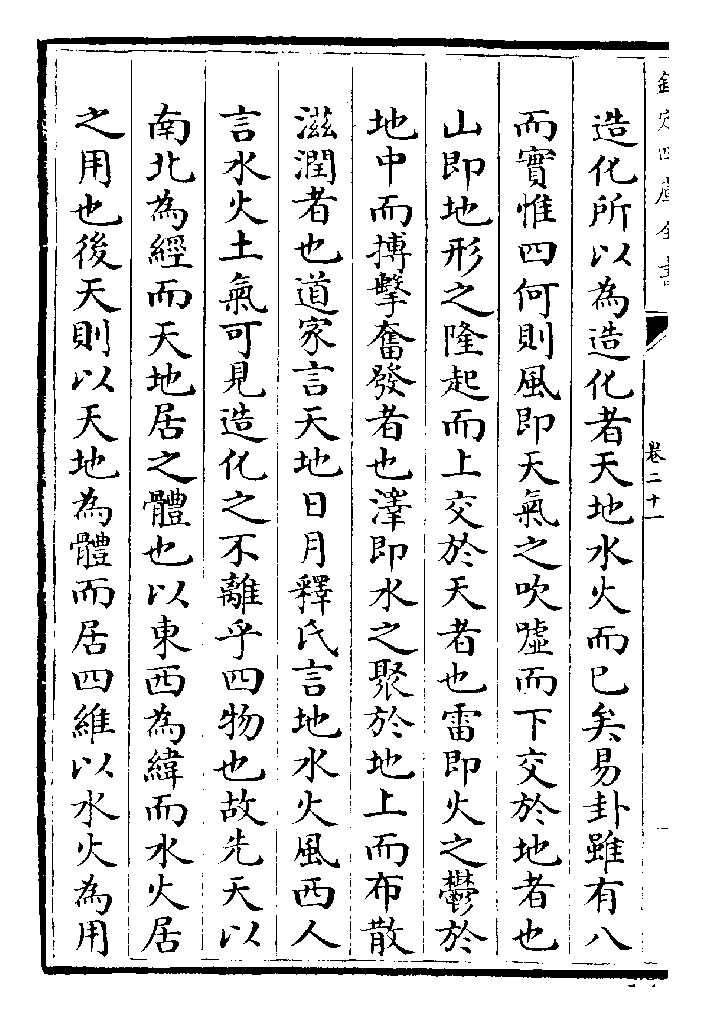 欽定四庫全書
卷二十一
造化所以為造化者天地水火而已矣易卦雖有八
而實惟四何則風即天氣之吹噓而下交於地者也
山即地形之隆起而上交於天者也雷即火之鬱於
地中而搏擊奮發者也澤即水之聚於地上而布散
滋潤者也道家言天地日月釋氏言地水火風西人
言水火土氣可見造化之不離乎四物也故先天以
南北為經而天地居之體也以東西為緯而水火居
之用也後天則以天地為體而居四維以水火為用